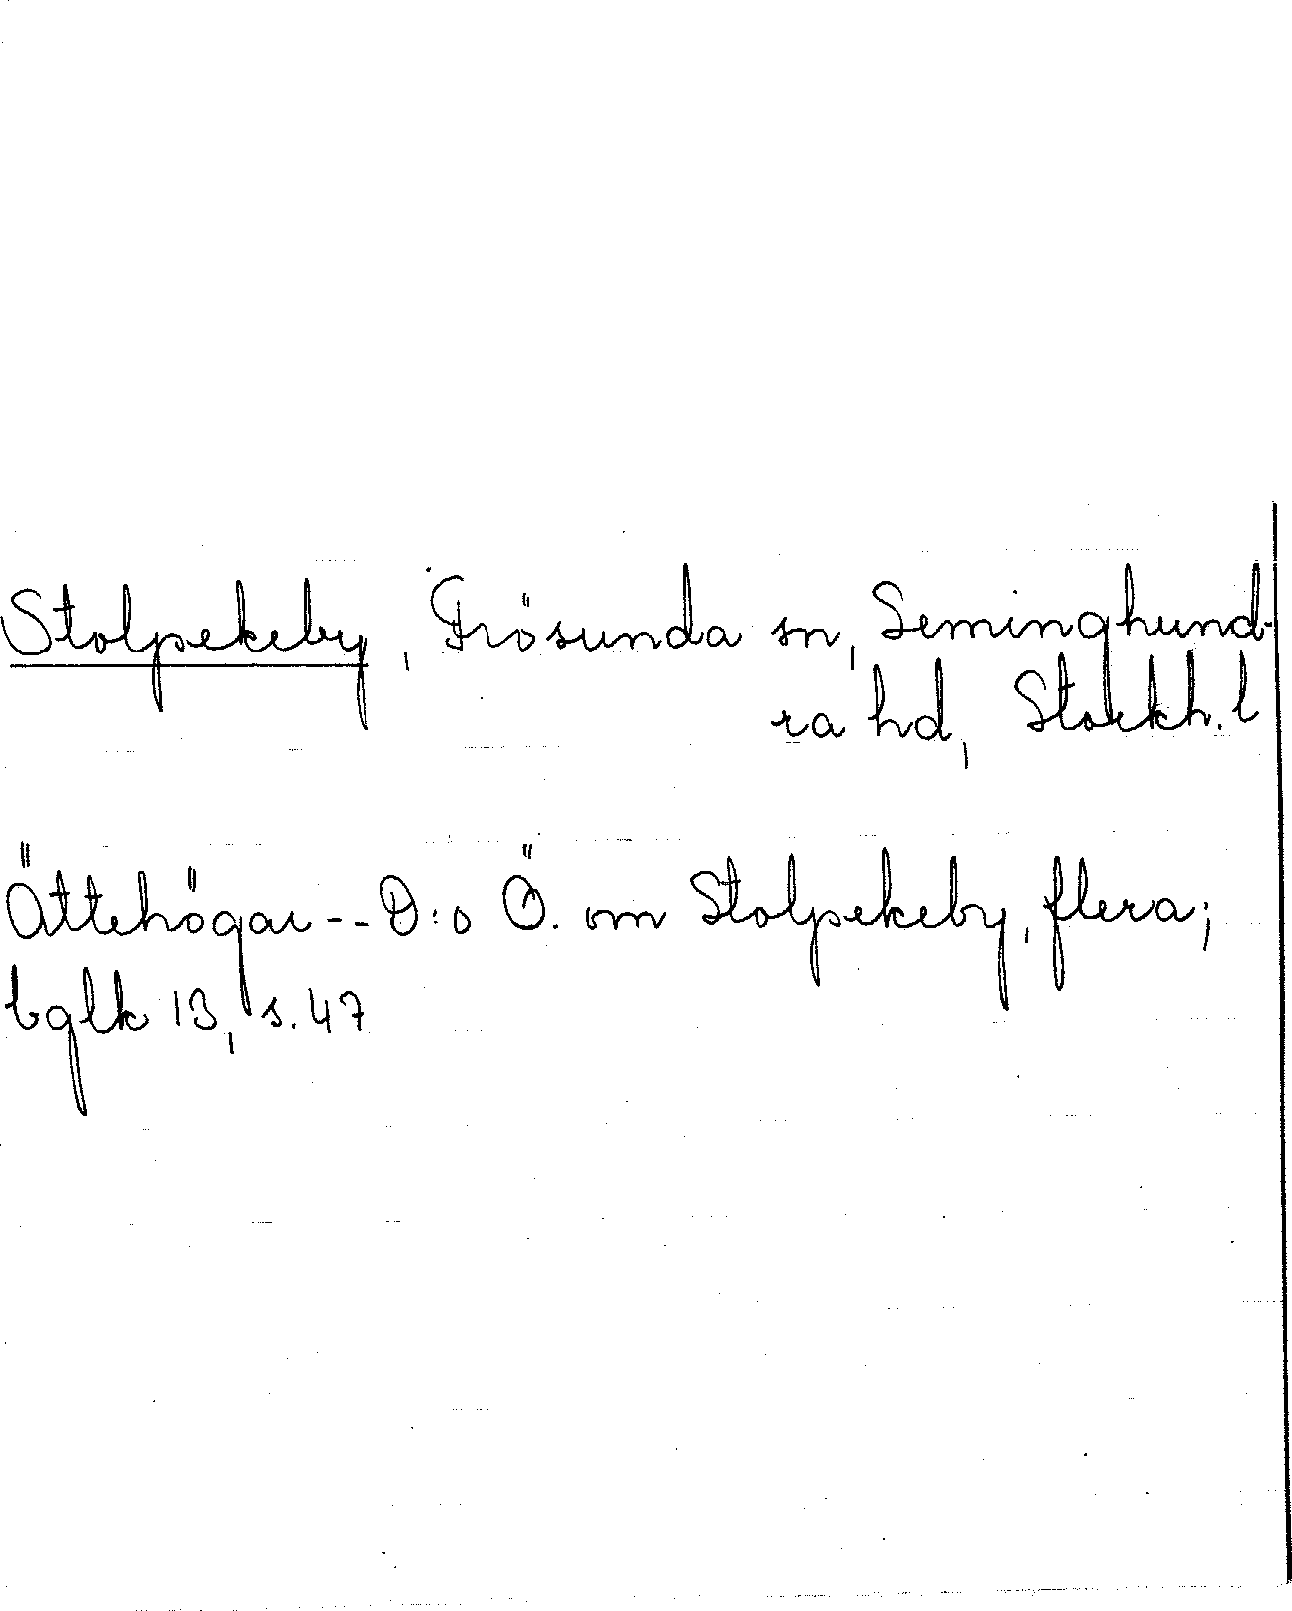 Stolpekeby, Frösunda sn, Seminghund-
ra hd, Stockh. l
Ättehögar -- D:o Ö. om Stolpekeby, flera;
bglk 13, s. 47